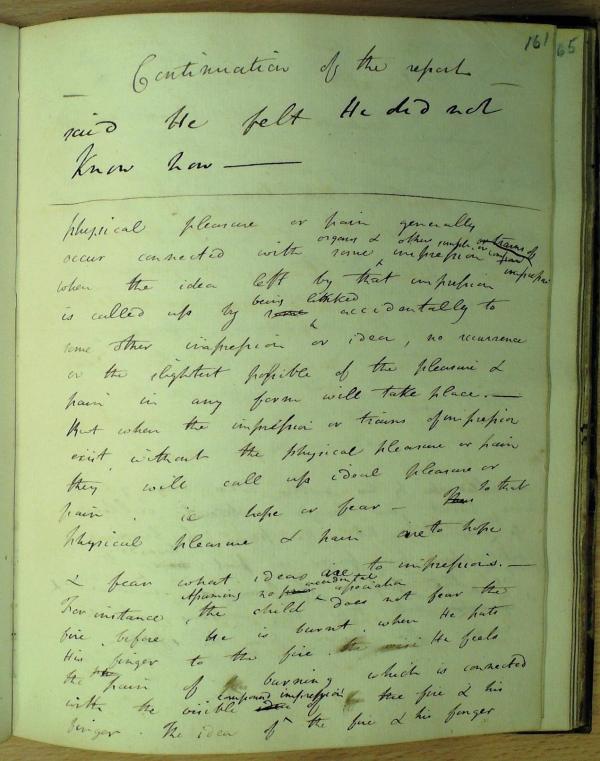 161 65
Continuation of the report
said He felt He did not
Know how —
physical pleasure or pain generally
occur connected with some organs & other simple or compound impression or trains of impression
when the idea left by that impression
is called up by some being linked accidentally to
some other impression or idea, no recurrence
or the slightest possible of the pleasure &
pain in any form will take place. —
But when the impression or trains of impression
exist without the physical pleasure or pain
they will call up ideal pleasure or
pain. ie hope or fear — So that
physical pleasure & pain are to hope
& fear what ideas are to impressions. —
For instance, Assuming no accidental association the child does not fear the
fire before He is burnt. when He puts
His finger to the fire He feels
the pain of burning which is connected
with the visible compound impression of the fire & his
finger. The idea of the fire & his finger